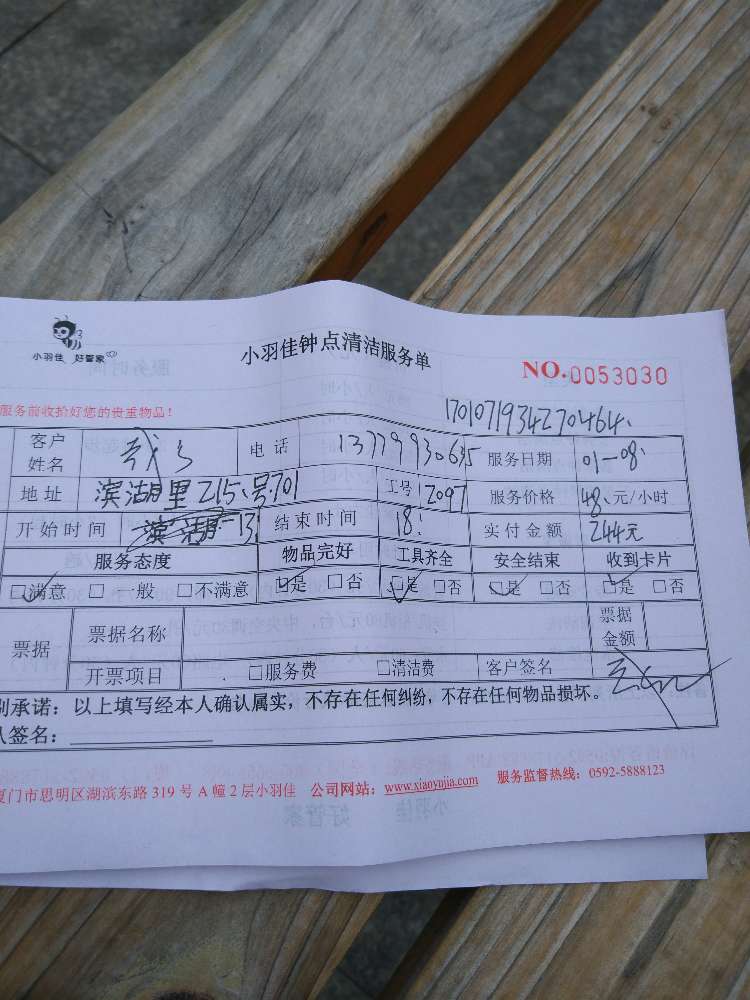 小羽佳 好管家
小羽佳钟点清洁服务单
NO.0053030
服务前收拾好您的贵重物品！
170107193427 0464
客户姓名 电话 13779930635 服务日期 01-08
地址 滨湖里215号701 工号 2097 服务价格 48元/小时
开始时间 13 结束时间 18: 实付金额 244元
服务态度 物品完好 工具齐全 安全结束 收到卡片
□满意 □一般 □不满意 □是 □否 □是 □否 □是 □否 □是 □否
票据 票据名称 票据金额
开票项目 □服务费 □清洁费 客户签名
承诺：以上填写经本人确认属实，不存在任何纠纷，不存在任何物品损坏。
人签名：
厦门市思明区湖滨东路319号A幢2层小羽佳 公司网站：www.xiaoyujia.com 服务监督热线：0592-5888123